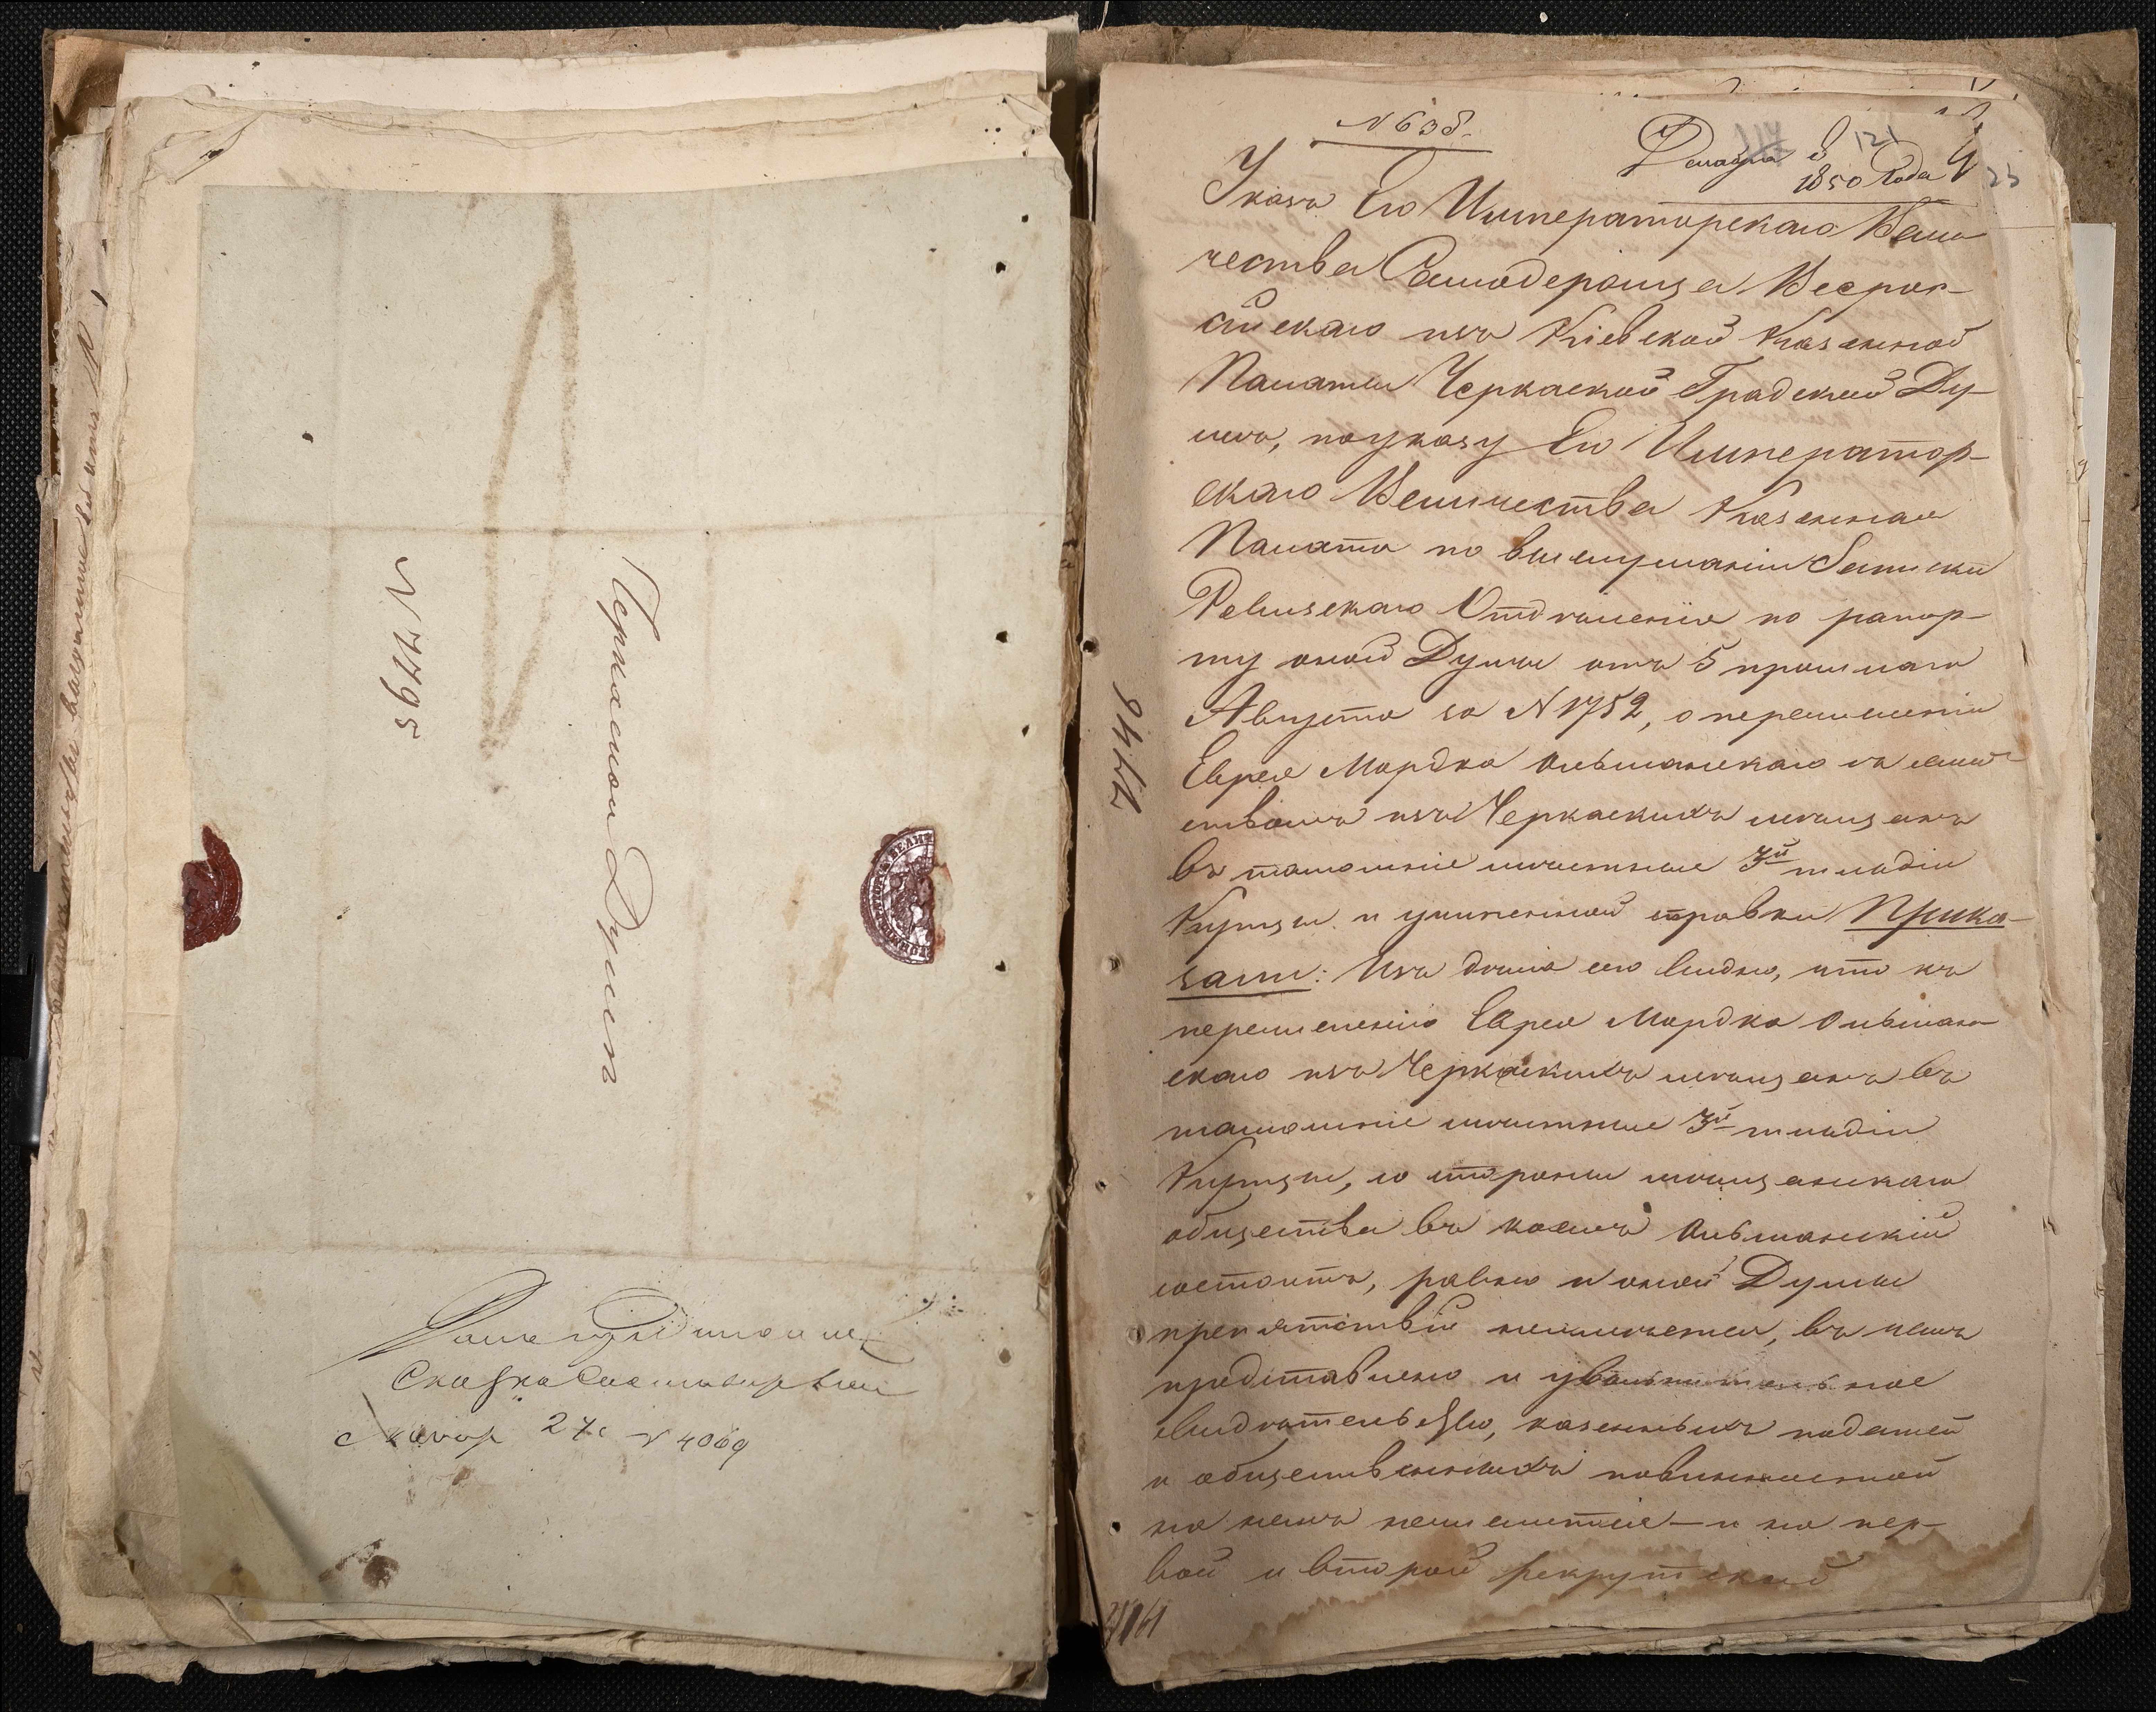 № 7795
Черкаской Думѣ
Сказка
27 № 4069
№ 638.
121
Декабря 1850 Года
23
Указъ Его Императорскаго Вели
чества Самодержца Всерос-
сійскаго изъ Кіевской Казенной
Палаты Черкаской Градской Ду-
мѣ, по указу Его Император-
скаго Величества Казенная
Палата по выслушаніи Записки
Ревизскаго Отдѣленія по рапор-
ту оной Думы отъ 5 прошлаго
Августа за № 1752, о перечисленіи
Еврея Мордка Ольшанскаго съ семей-
ствомъ изъ Черкаскихъ мѣщанъ
въ тамошніе мѣстные 3й гильдіи
Купцы и учиненной справки Прика-
зали: Изъ дѣла сего видно, что къ
перечисленію Еврея Мордка Ольшан-
скаго изъ Черкаскихъ мѣщанъ въ
тамошніе мѣстные 3й гильдіи
Купцы, со стороны мѣщанскаго
общества въ коемъ Ольшанскій
состоитъ, равно и оной Думы
препятствій неимѣется, въ чемъ
представлено и увольнительное
свидѣтельство, казенныхъ податей
и общественныхъ повинностей
на немъ нечислится — и на пер-
вой и второй рекрутской
7746